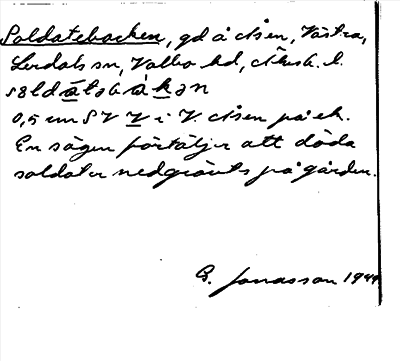 Soldatebacken, gd å Åsen, Västra,
Lerdals sn, Valbo hd, Älvsb. l.
0,5 cm SV V i V. Åsen på ek.
En sägen förtäljer att döda
soldater nedgrävts på gården.
G. Jonasson 1944